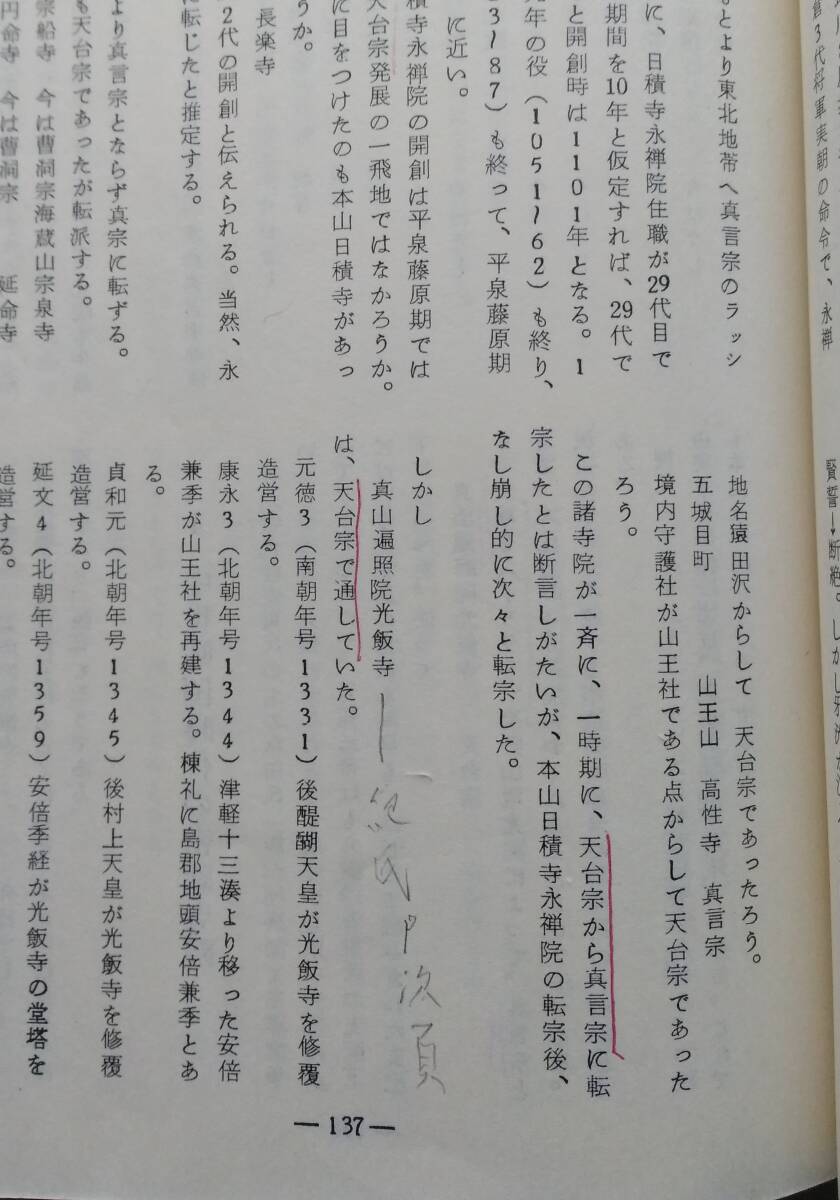 創3代将軍実朝の命令で、永禅
賢誓→断絶。しかし
とより東北地帯へ真言宗のラッシ
に、日積寺永禅院住職が29代目で
期間を10年と仮定すれば、29代で
と開創時は1101年となる。1
年の役(1051〜62)も終り、
3〜87)も終って、平泉藤原期
に近い。
積寺永禅院の開創は平泉藤原期では
天台宗発展の一飛地ではなかろうか。
に目をつけたのも本山日積寺があっ
うか。
長楽寺
2代の開創と伝えられる。当然、永
に転じたと推定する。
より真言宗とならず真宗に転ずる。
も天台宗であったが転派する。
宗船寺 今は曹洞宗海蔵山宗泉寺
円命寺 今は曹洞宗 延命寺
地名猿田沢からして 天台宗であったろう。
五城目町 山王山 高性寺 真言宗
境内守護社が山王社である点からして天台宗であった
ろう。
この諸寺院が一斉に、一時期に、天台宗から真言宗に転
宗したとは断言しがたいが、本山日積寺永禅院の転宗後、
なし崩し的に次々と転宗した。
しかし
真山遍照院光飯寺
次頁
は、天台宗で通していた。
元徳3(南朝年号1331)後醍醐天皇が光飯寺を修覆
造営する。
康永3(北朝年号1344)津軽十三湊より移った安倍
兼季が山王社を再建する。棟礼に島郡地頭安倍兼季とあ
る。
貞和元(北朝年号1345)後村上天皇が光飯寺を修覆
造営する。
延文4(北朝年号1359)安倍季経が光飯寺の堂塔を
造営する。
—137—